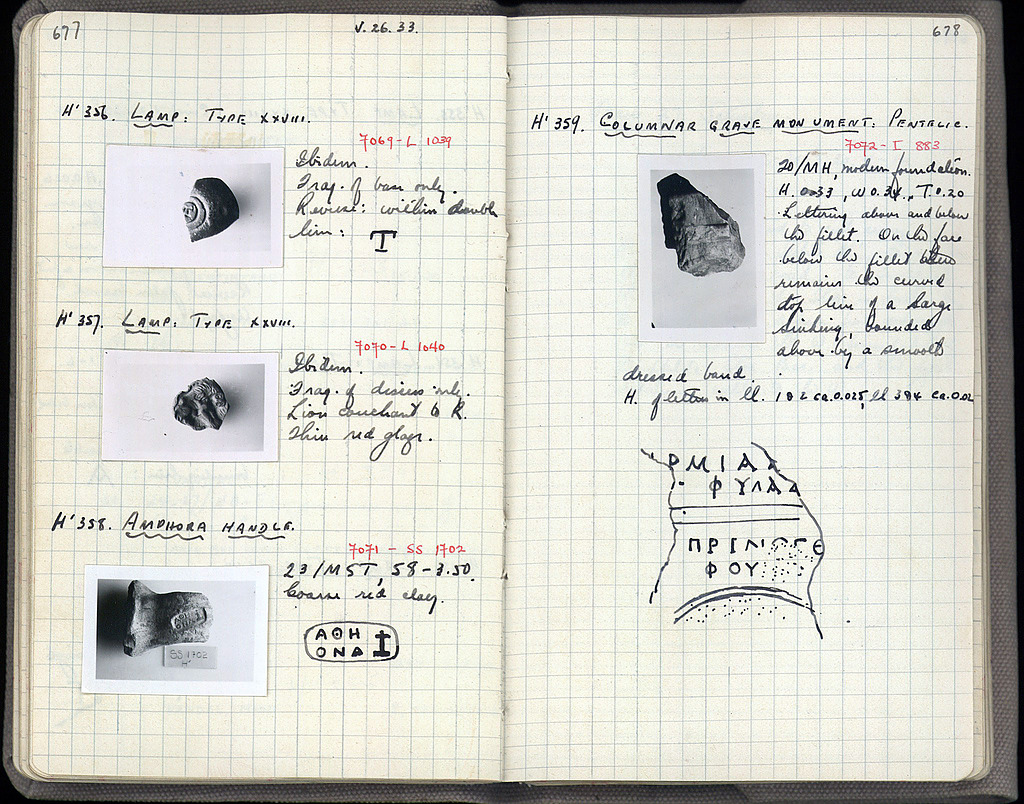 677
V. 26. 33.
H' 356. LAMP: TYPE XXVIII.
7069-L 1039
Ibidem.
Frag. of base only.
Reverse: within double
line: T
H' 357. LAMP: TYPE XXVIII.
7070-L 1040
Ibidem.
Frag. of discus only.
Lion couchant to R.
Thin red glaze.
H' 358. AMPHORA HANDLE.
7071 - SS 1702
23/MST, 58-3.50.
Coarse red clay.
SS 1702
H'
ΑΘΗ
ΟΝΑ
678
H' 359. COLUMNAR GRAVE MONUMENT: PENTELIC.
7072-I 883
20/MH, modern foundation.
H. 0.33, W 0.34, T. 0.20
Lettering above and below
the fillet. On the face
below the fillet
remains the curved
top line of a large
sinking, bounded
above by a smooth
dressed band.
H. of letters in ll. 1 & 2 ca. 0.025, ll 3 & 4 ca. 0.02
ΡΜΙΑ
ΦΥΛΑ
ΠΡΙ
ΦΟΥ